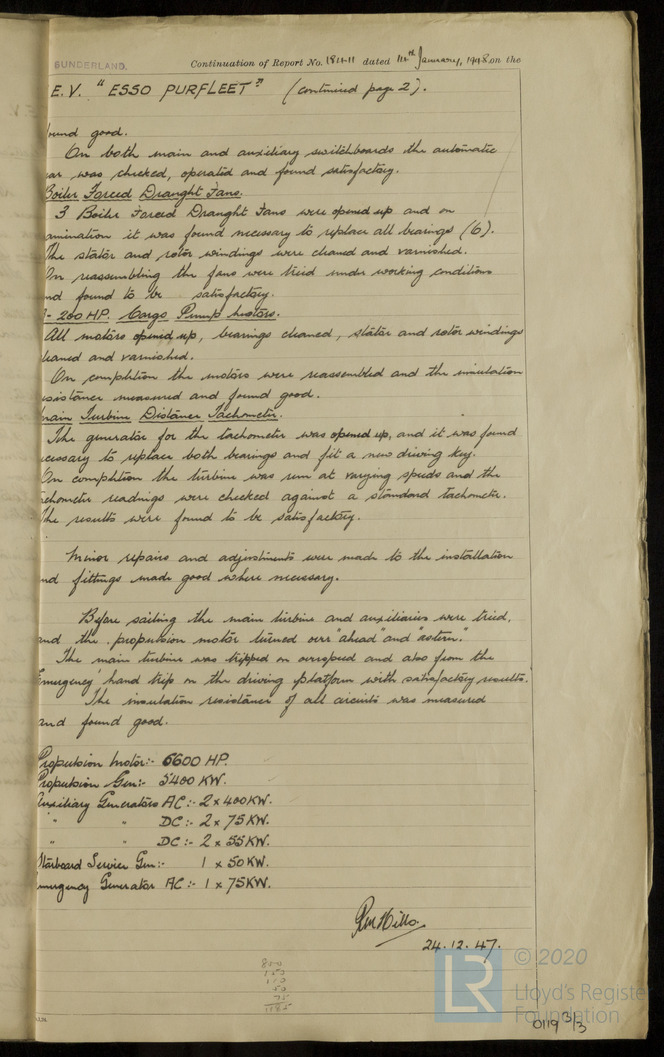 SUNDERLAND. Continuation of Report No. dated January, 1948 on the
E.V. "ESSO PURFLEET" (continued page 2).
ound good.
On both main and auxiliary switchboards the automatic
ar was checked, operated and found satisfactory.
Boiler Forced Draught Fans.
3 Boiler Forced Draught Fans were opened up and on
amination it was found necessary to replace all bearings (6).
The stator and rotor windings were cleaned and varnished.
On reassembling the fans were tried under working conditions
nd found to be satisfactory.
- 200 HP. Cargo Pump Motors.
All motors opened up, bearings cleaned, stator and rotor windings
leaned and varnished.
On completion the motors were reassembled and the insulation
esistance measured and found good.
Main Turbine Distance Tachometer.
The generator for the tachometer was opened up, and it was found
ecessary to replace both bearings and fit a new driving key.
On completion the turbine was run at varying speeds and the
achometer readings were checked against a standard tachometer.
The results were found to be satisfactory.
Minor repairs and adjustments were made to the installation
nd fittings made good where necessary.
Before sailing the main turbine and auxiliaries were tried,
and the propulsion motor turned over "ahead and "astern."
The main turbine was tripped on overspeed and also from the
Emergency' hand trip on the driving platform with satisfactory results.
The insulation resistance of all circuits was measured
and found good.
Propulsion Motor:- 6600 HP.
Propulsion Gen:- 5400 KW.
Auxiliary Generators AC:- 2 x 400 KW.
" " DC:- 2 x 75 KW.
" " DC:- 2 x 55 KW.
Starboard Service Gen:- 1 x 50 KW.
Emergency Generator AC:- 1 x 75 KW.
24.12.47.
800
150
110
50
75
1185
© 2020
LR
Lloyd's Register
Foundation
0119 3/3